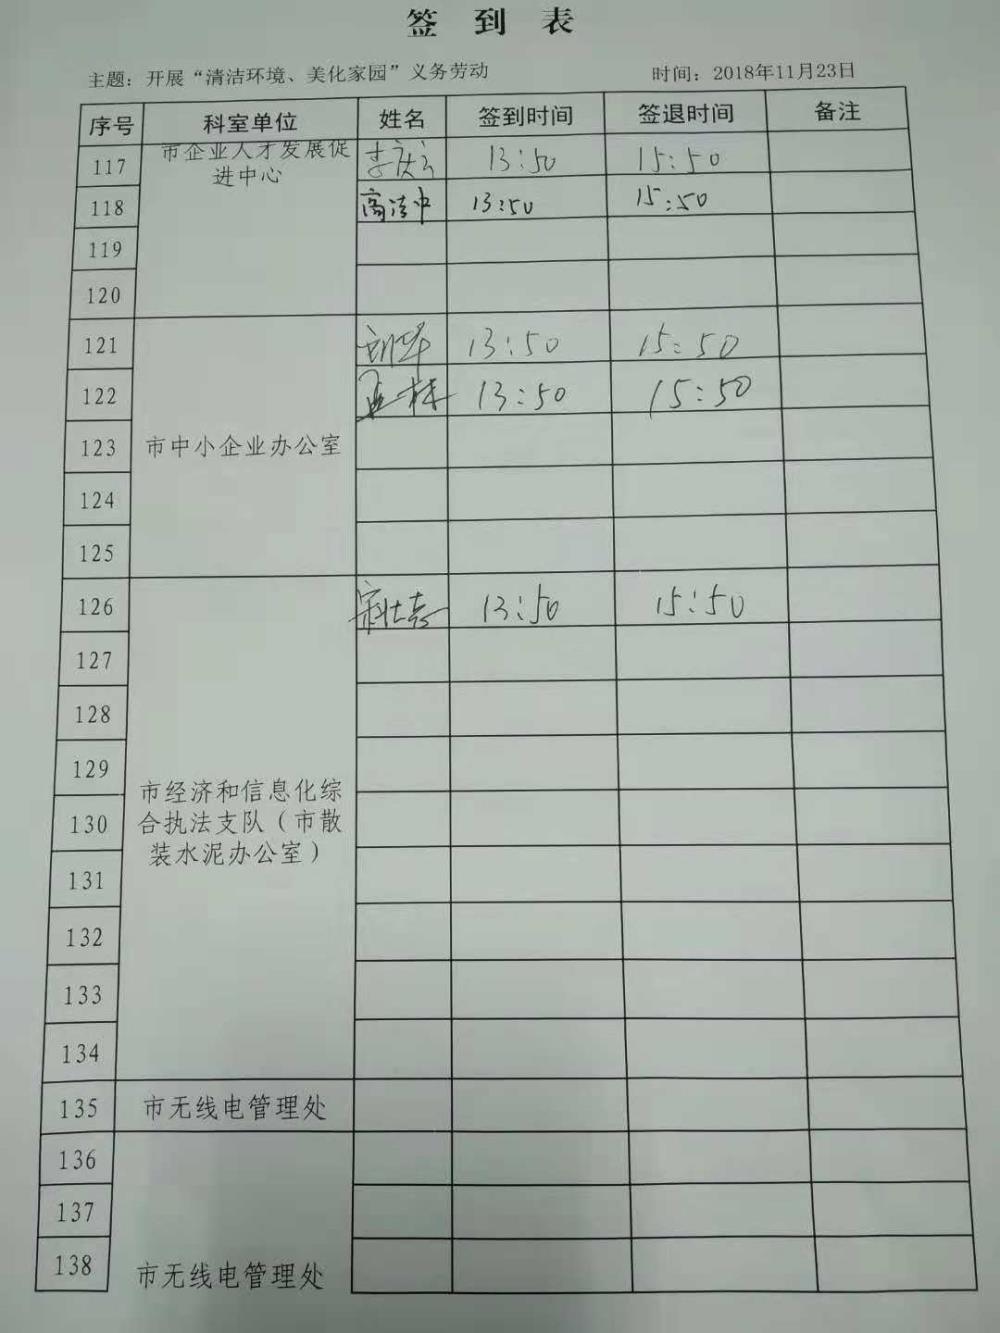 签到表
主题：开展“清洁环境、美化家园”义务劳动 时间：2018年11月23日
序号 科室单位 姓名 签到时间 签退时间 备注
市企业人才发展促
进中心
117 13:50 15:50
118 13:50 15:50
119
120
121 13:50 15:50
122 13:50 15:50
123 市中小企业办公室
124
125
126 13:50 15:50
127
128
129
市经济和信息化综
130 合执法支队（市散
装水泥办公室）
131
132
133
134
135 市无线电管理处
136
137
138 市无线电管理处